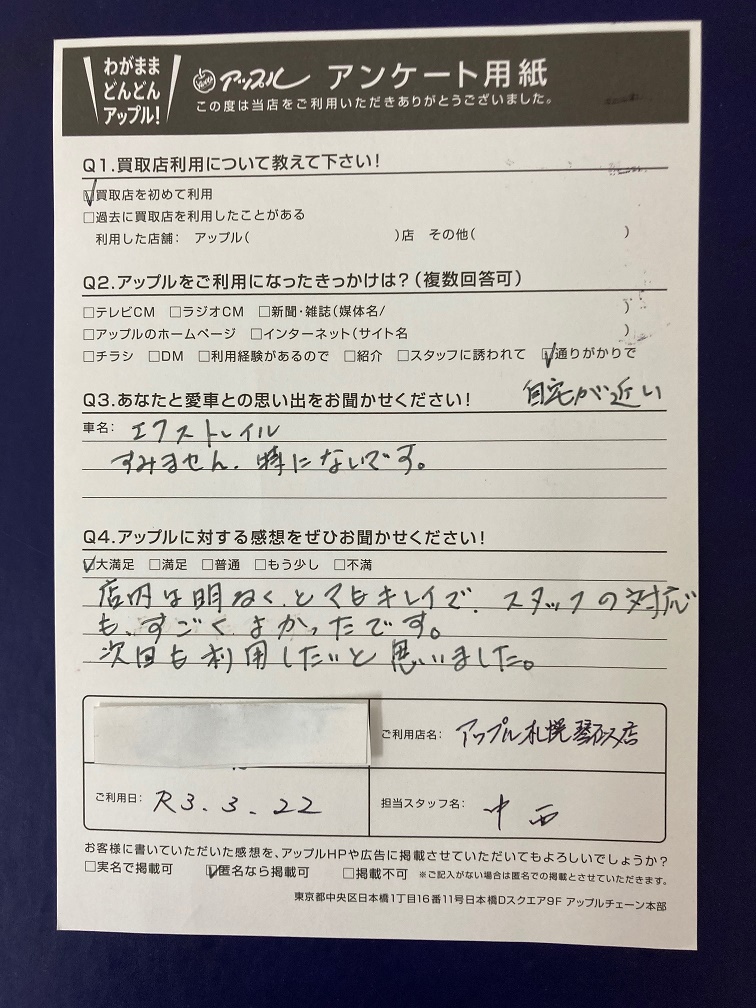 わがまま
どんどん
アップル!
アップル アンケート用紙
この度は当店をご利用いただきありがとうございました。
Q1.買取店利用について教えて下さい!
☑買取店を初めて利用
□過去に買取店を利用したことがある
利用した店舗: アップル( )店 その他( )
Q2.アップルをご利用になったきっかけは?(複数回答可)
□テレビCM □ラジオCM □新聞・雑誌(媒体名/ )
□アップルのホームページ □インターネット(サイト名 )
□チラシ □DM □利用経験があるので □紹介 □スタッフに誘われて ☑通りがかりで
自宅が近い
Q3.あなたと愛車との思い出をお聞かせください!
車名: エクストレイル
すみません、特にないです。
Q4.アップルに対する感想をぜひお聞かせください!
☑大満足 □満足 □普通 □もう少し □不満
店内は明るく、とてもキレイで、スタッフの対応
も、すごくよかったです。
次回も利用したいと思いました。
ご利用店名: アップル札幌琴似店
ご利用日: R3.3.22
担当スタッフ名: 中西
お客様に書いていただいた感想を、アップルHPや広告に掲載させていただいてもよろしいでしょうか?
□実名で掲載可 ☑匿名なら掲載可 □掲載不可 ※ご記入がない場合は匿名での掲載とさせていただきます。
東京都中央区日本橋1丁目16番11号日本橋Dスクエア9F アップルチェーン本部